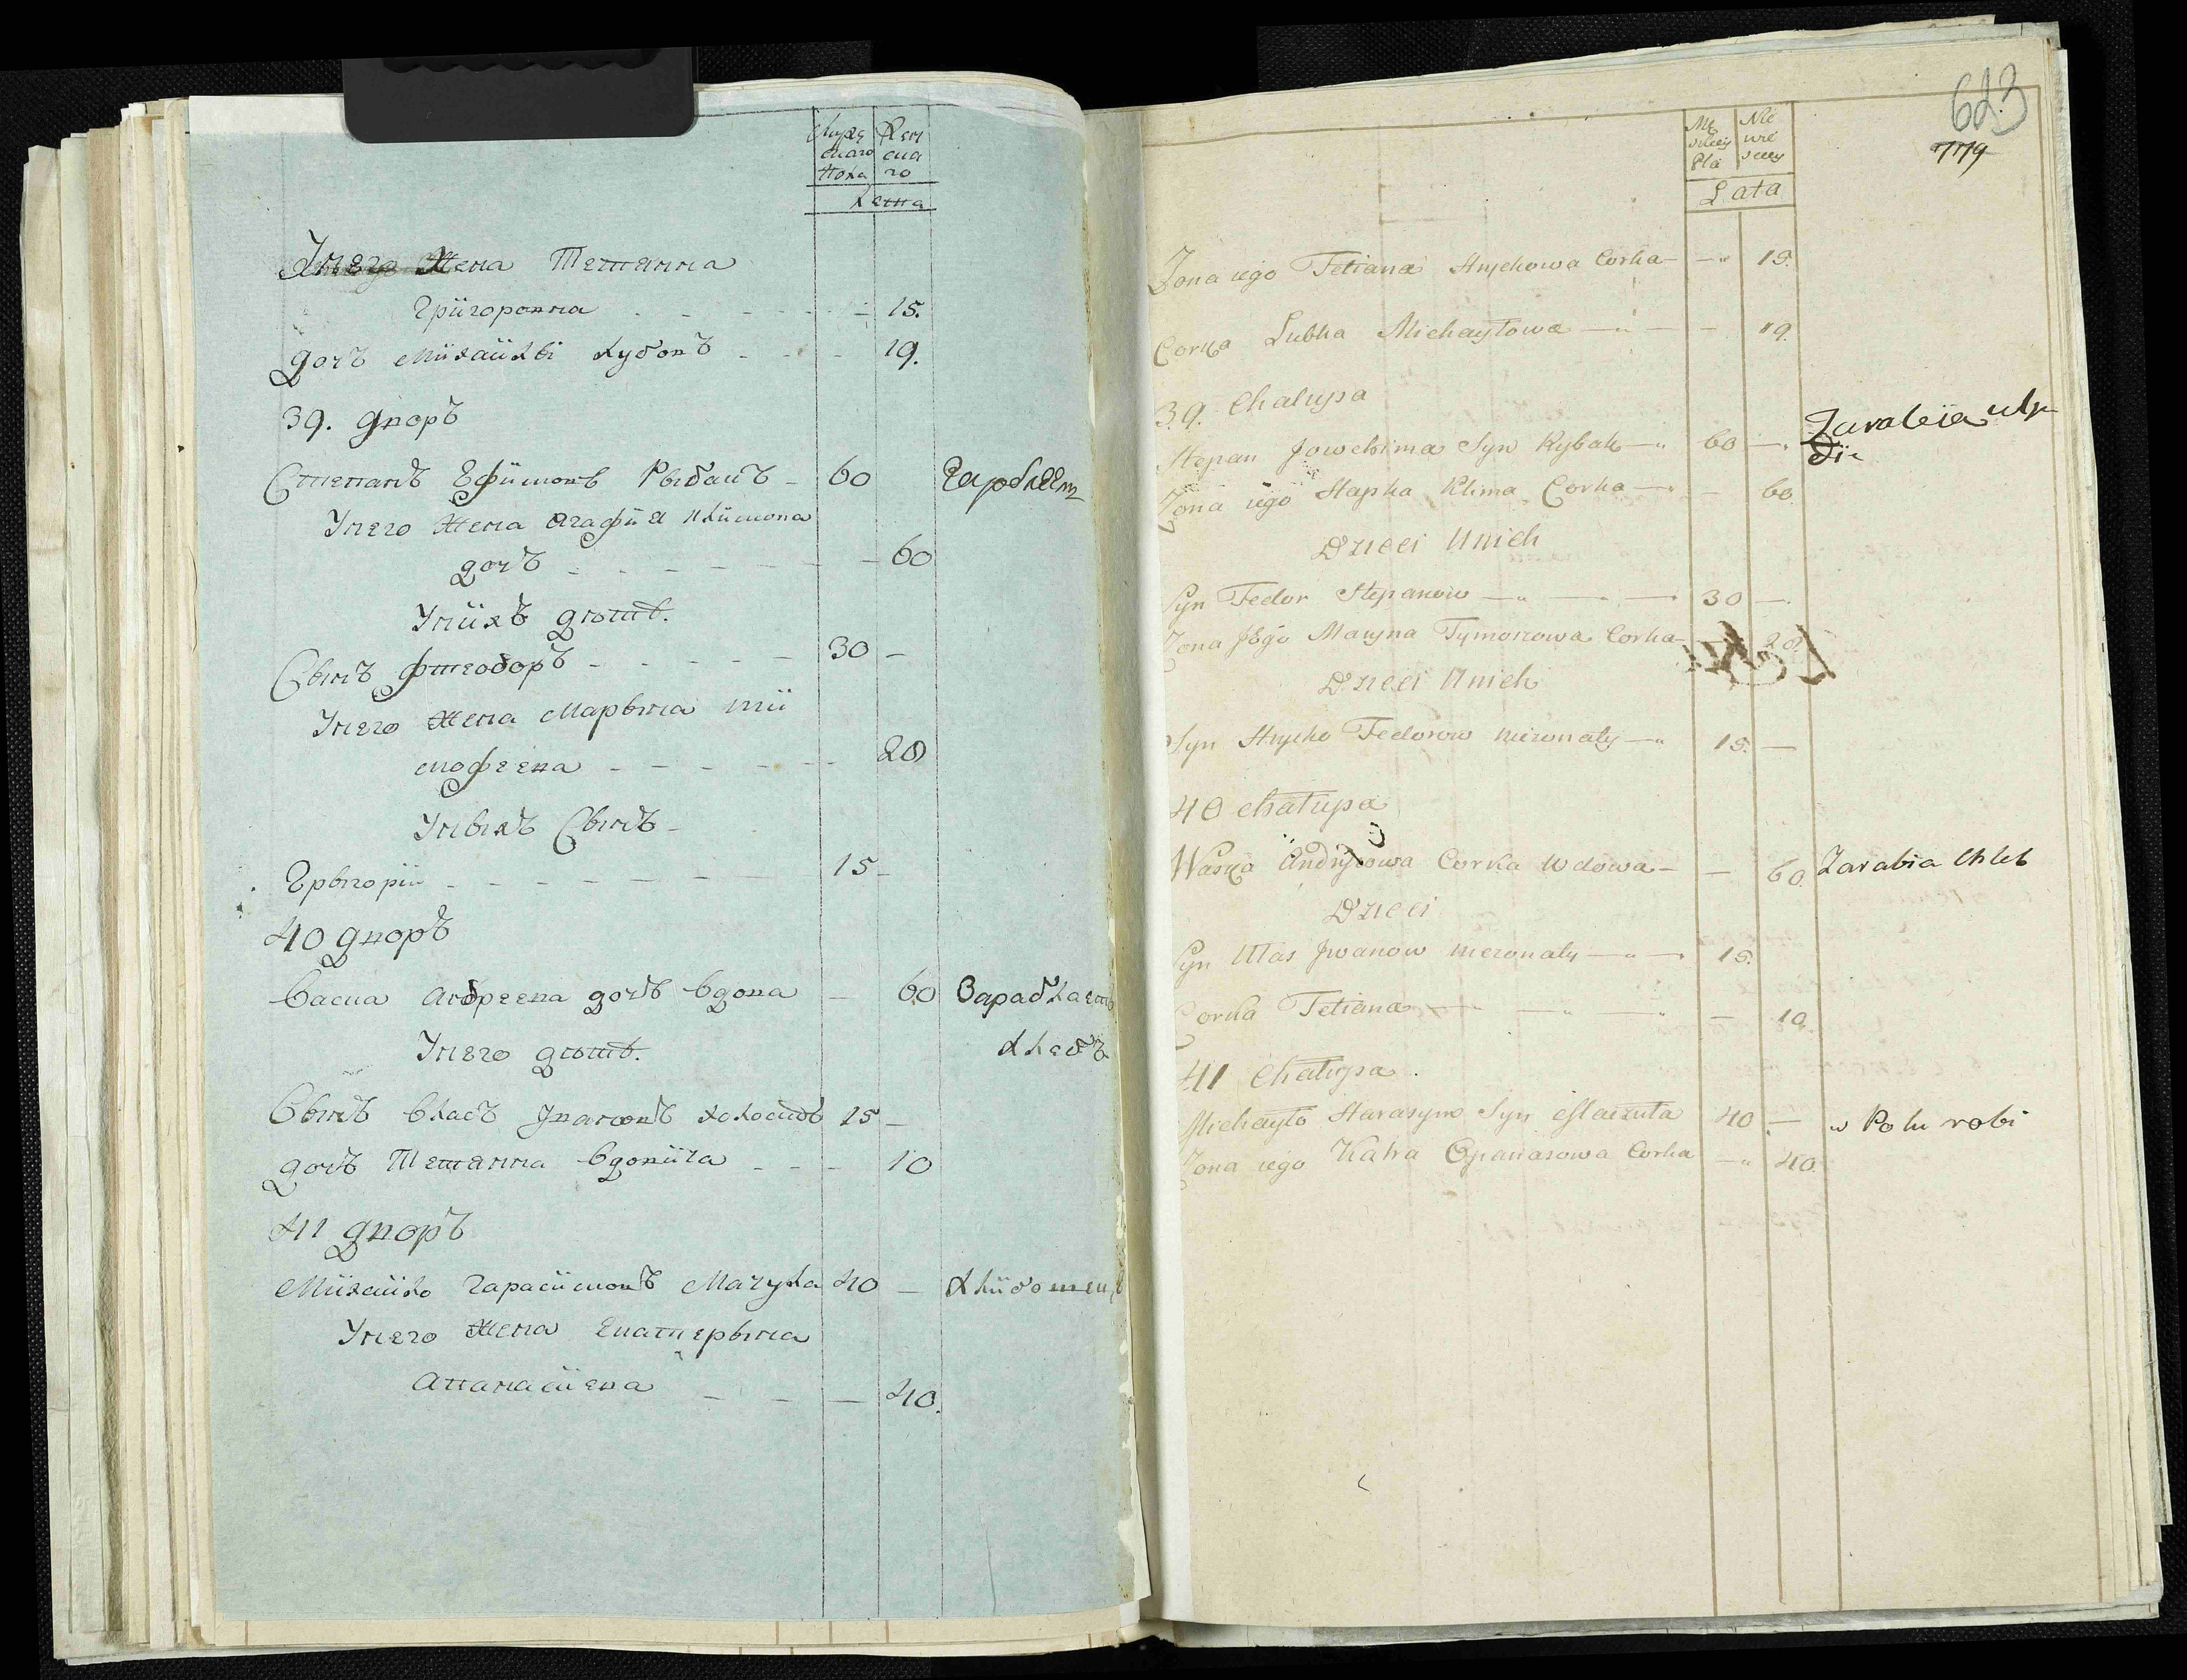 Муже
скаго
пола
Жен
ска
го
Лета
Унего Жена Тетянна
Григоровна 15.
дочъ Михайлы Любовъ 19.
39. дворъ
Степанъ Ефимовъ Рыбакъ 60
Унего Жена Агафия Климова
дочъ 60
Унихъ дѣти.
Сынъ Фтеодоръ 30
Унего Жена Марына тии
мофеева 20
Унвихъ Сынъ
Грыгорій 15
40 дворъ
Васка Андреева дочъ Вдова 60 Зарабляетъ
Унего дѣти. хлебъ
Сынъ Власъ Ивановъ холостъ 15
дочъ Тетянна Вдовича 10
41 дворъ
Михайло Гарасимовъ Мачула 40
Унего Жена Екатерына
Апанасиева 40.
623
779
Mę
skiey
Płci
Nie
wie
sciey
Lata
Żona iego Tetiana Hryckowa Corka 15.
Corka Lubka Michayłowa 19.
39. Chalupa
Stepan Jowchima Syn Rybak 60
Zona iego Hapka Klima Corka 60.
Dzieci Unich
Syn Fedor Stepanow 30
Zona Jego Maryna Tymonowa Corka 20
Dzieci Unich
Syn Hrycko Fedorow niezonaty 15.
40 chałupa
Waska Andryiowa Corka Wdowa 60. Zarabia Chleb
Dzieci
Syn Ułas Jwanow niezonaty 15.
Corka Tetiana 10.
41 Chałupa.
Michayło Harasyma Syn Maczuła 40 w Polu robi
Zona iego Katra Opanasowa Corka 40.